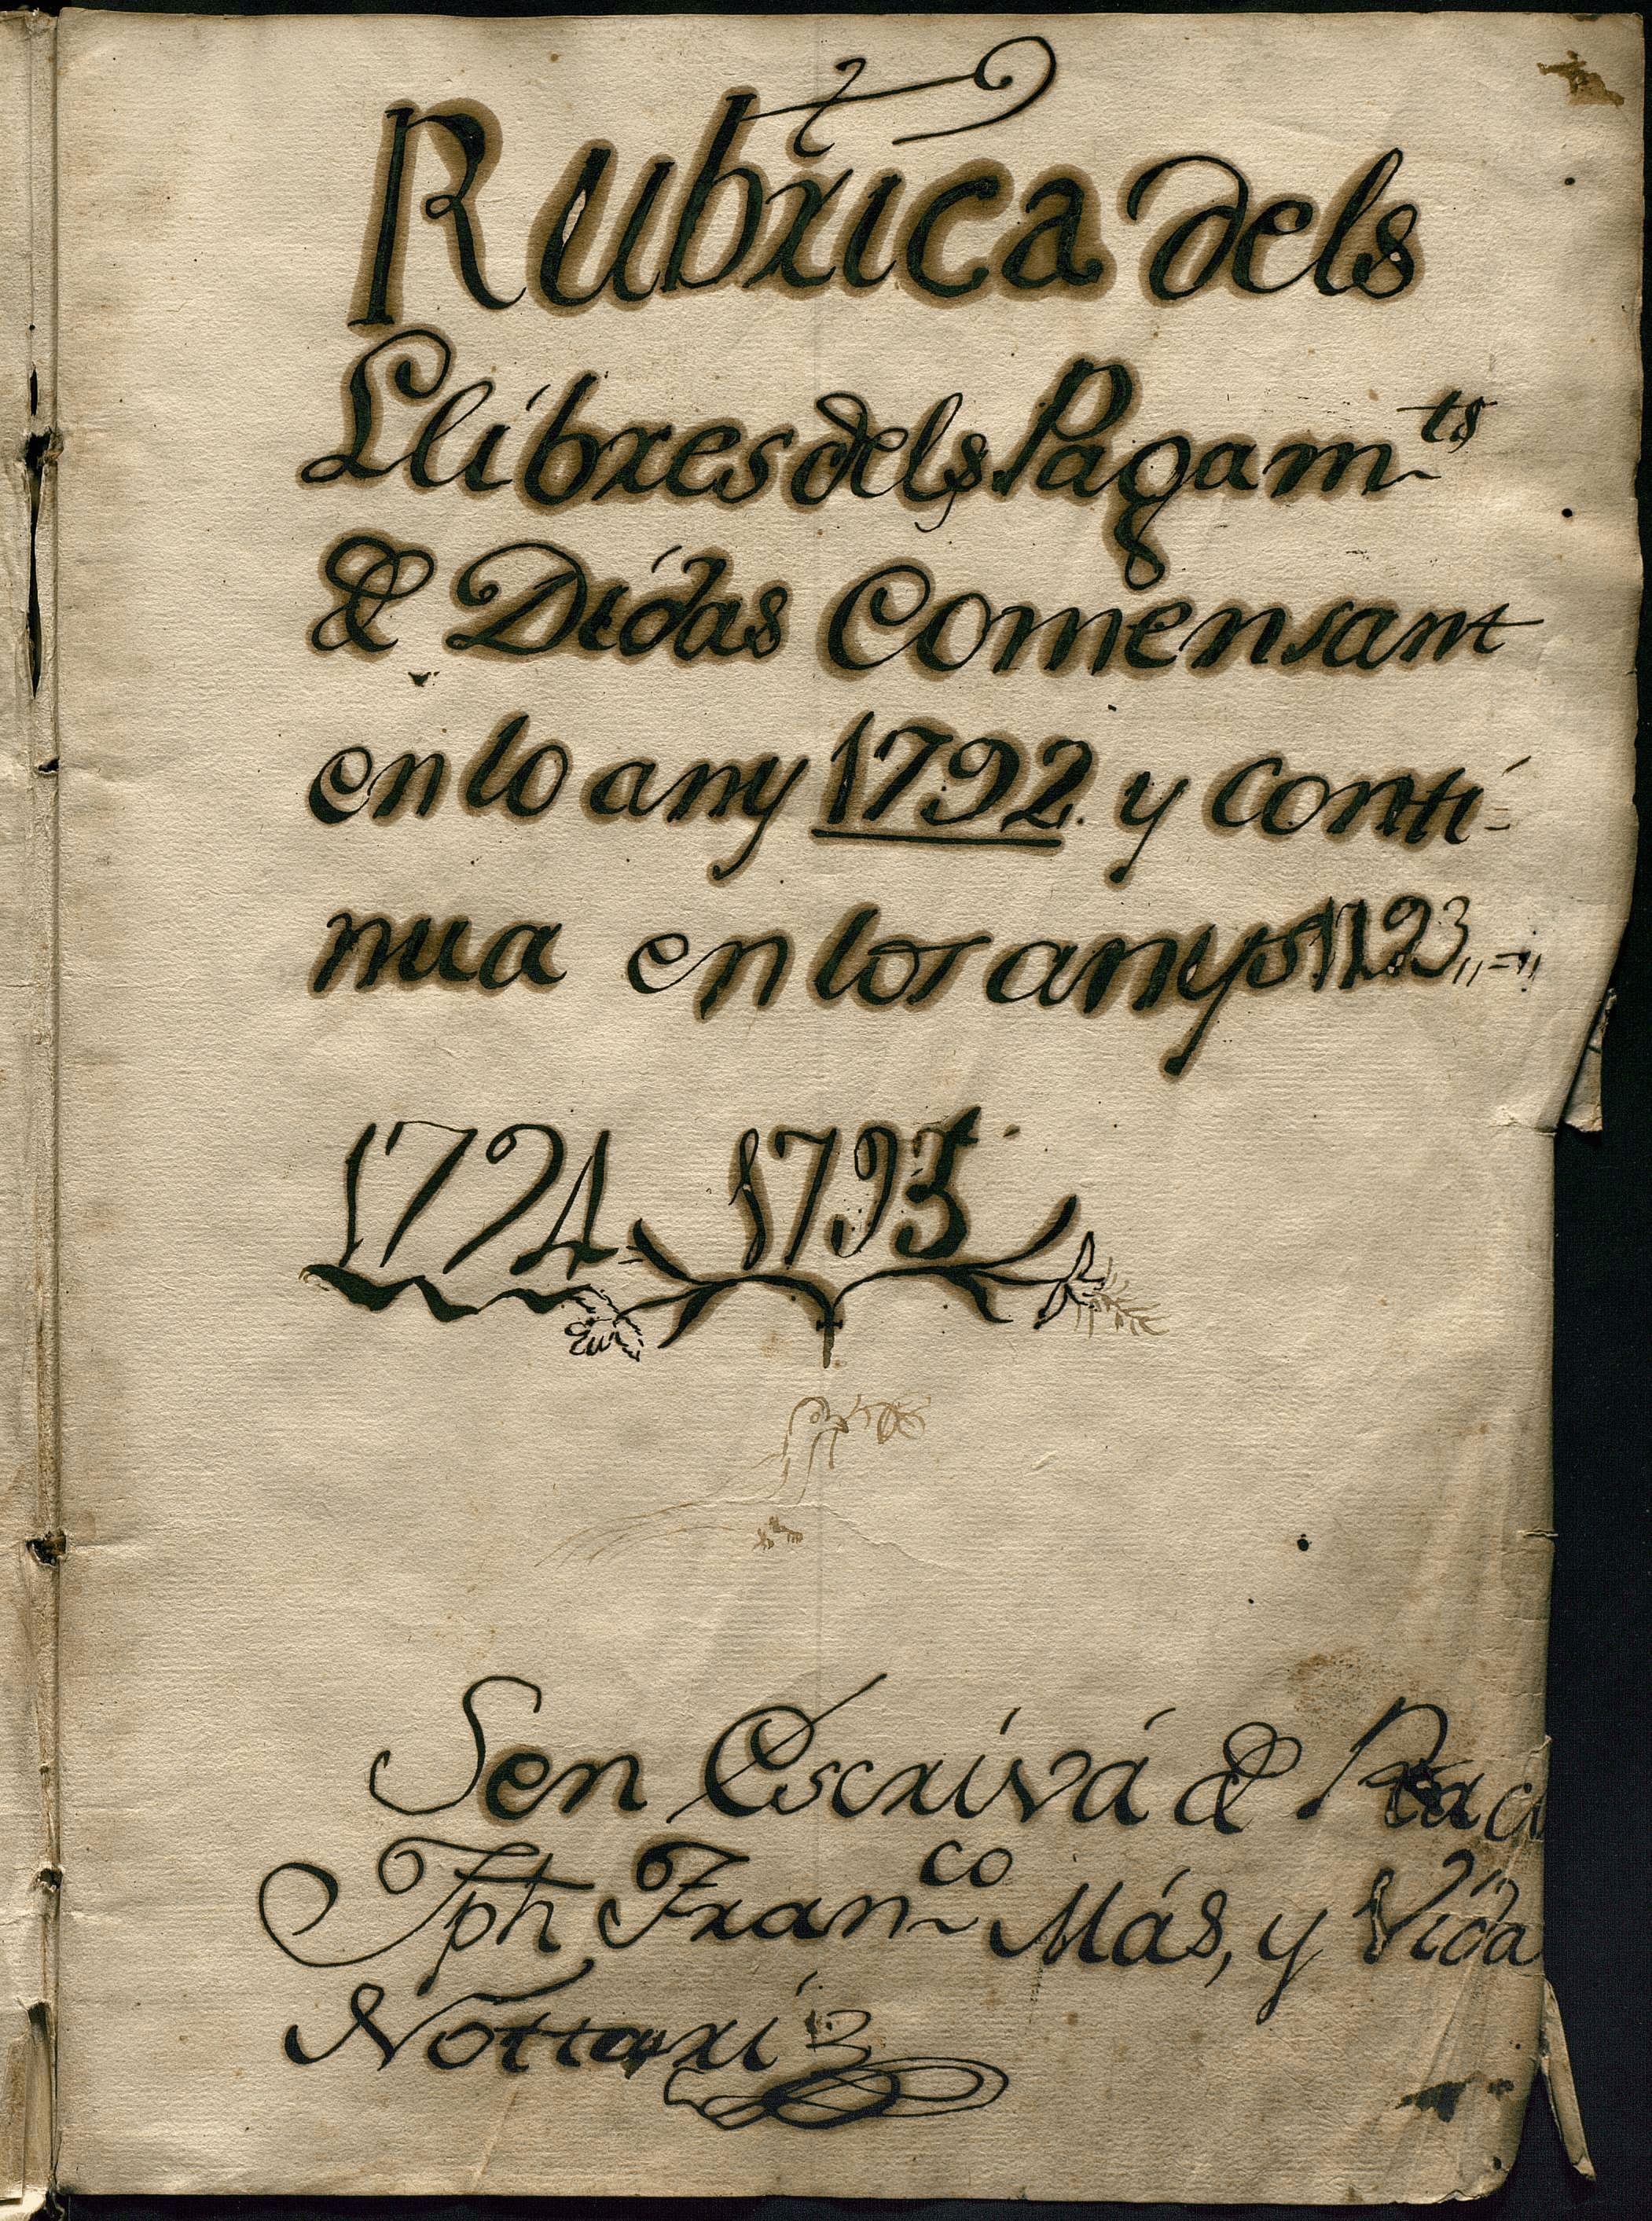 Rubrica dels
Llibres dels Pagam.ts
& Didas Comensant
en lo any 1792. y conti=
nua en los anys 1793,,=,,
1794. 1795.
Sen Escrivá &
Jph Fran.co Más, y Vida
Nottari